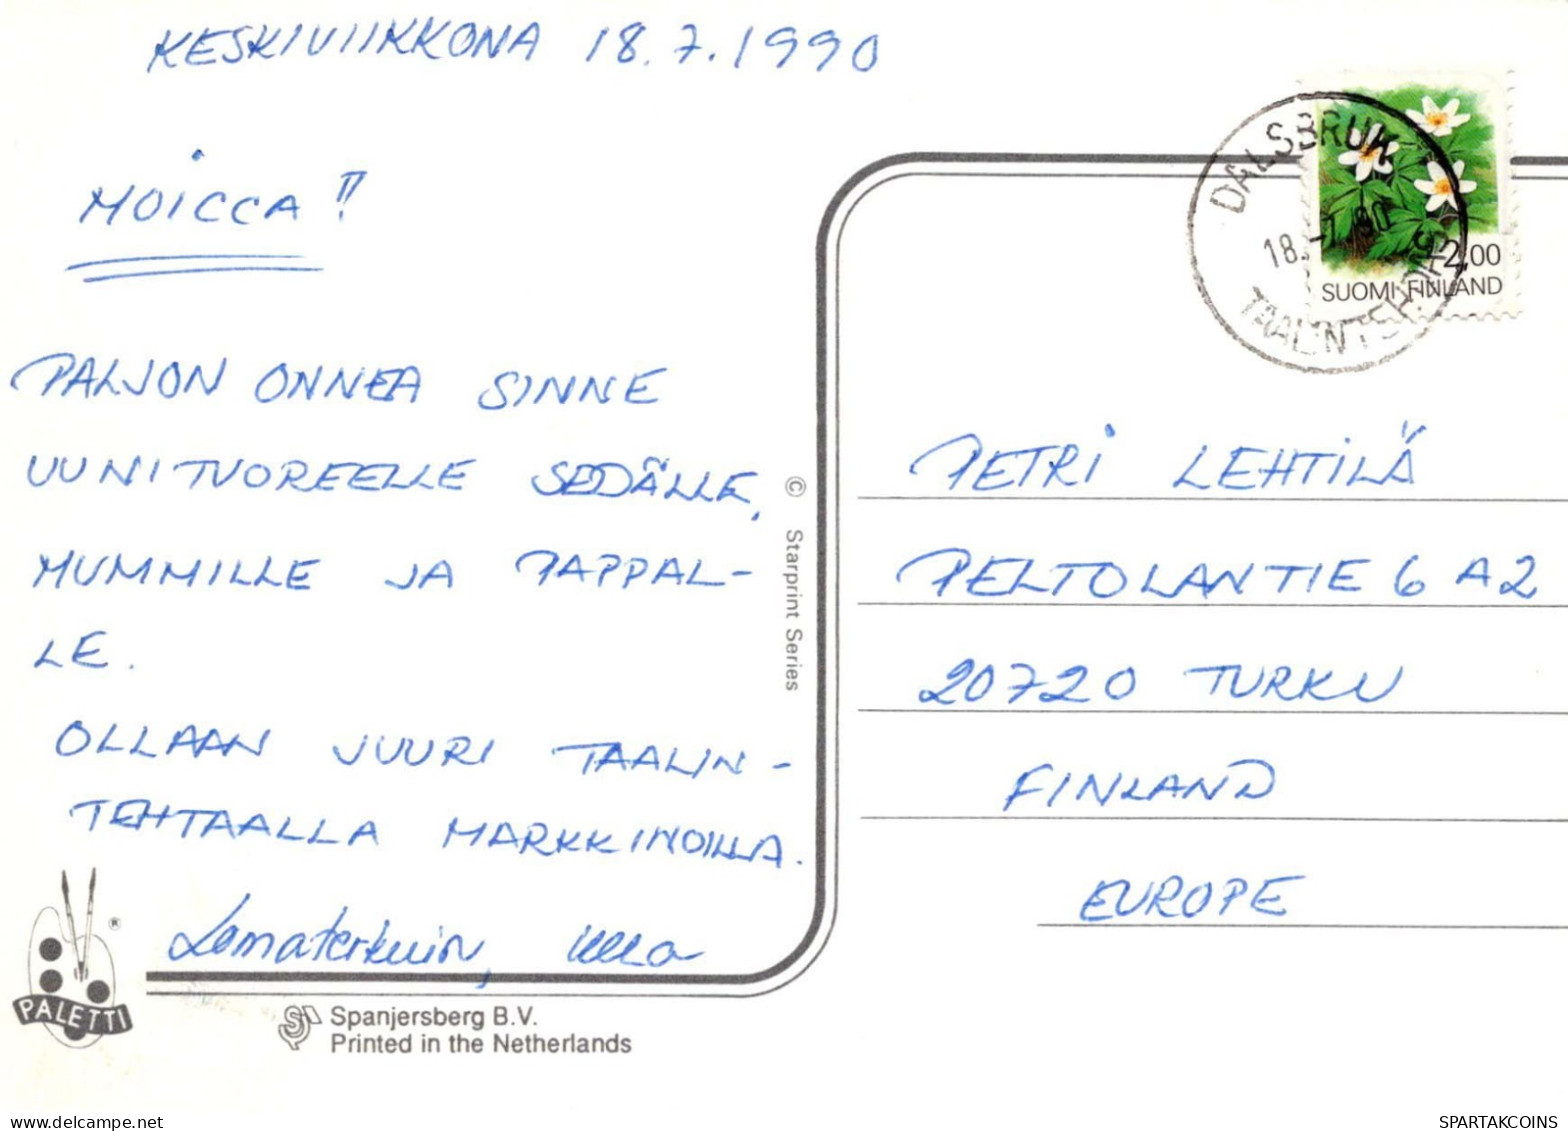 KESKIVIIKKONA 18.7.1990
MOICCA!!
PALJON ONNEA SINNE
UUNITUOREELLE SEDÄLLE,
MUMMILLE JA PAPPAL-
LE.
OLLAAN JUURI TAALIN-
TEHTAALLA MARKKINOILLA.
Lomaterkuin, Ulla
DALSBRUK
18. -7. 90
TAALINTEHDAS
2,00
SUOMI FINLAND
© Starprint Series
PETRI LEHTILÄ
PELTOLANTIE 6 A2
20720 TURKU
FINLAND
EUROPE
PALETTI ®
Spanjersberg B.V.
Printed in the Netherlands
https://www.delcampe.net
SPARTAKCOINS